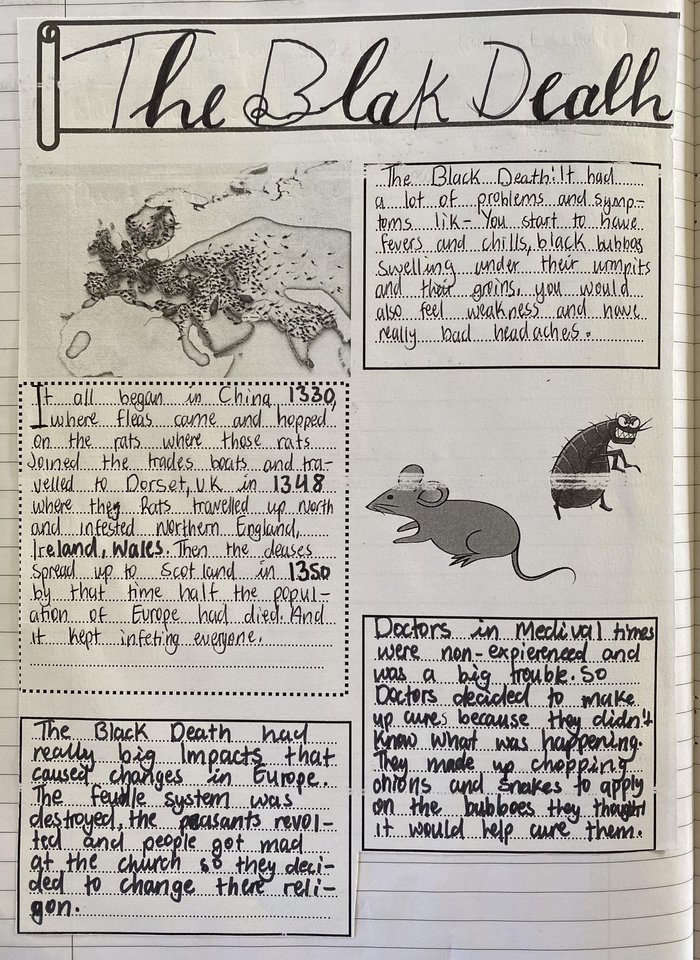 The Blak Death
The Black Death: It had
a lot of problems and symp-
toms lik- You start to have
fevers and chills, black bubbos
swelling under their urmpits
and their groins, you would
also feel weakness and have
really bad headaches.
It all began in China 1330,
where fleas came and hopped
on the rats where those rats
Joined the trades boats and tra-
velled to Dorset, U.K in 1348
where they Rats travelled up North
and infested Northern England,
Ireland, Wales. Then the deases
spread up to Scotland in 1350
by that time half the popul-
ation of Europe had died. And
it kept infeting everyone.
Doctors in Medival times
were non-expiereneed and
was a big trouble. So
Doctors decided to make
up cures because they didn't
know what was happening.
They made up chopping
onions and snakes to apply
on the bubboes they thought
it would help cure them.
The Black Death had
really big Impacts that
caused changes in Europe.
The feudle system was
destroyed, the peasants revol-
ted and people got mad
at the church so they deci-
ded to change there reli-
gon.